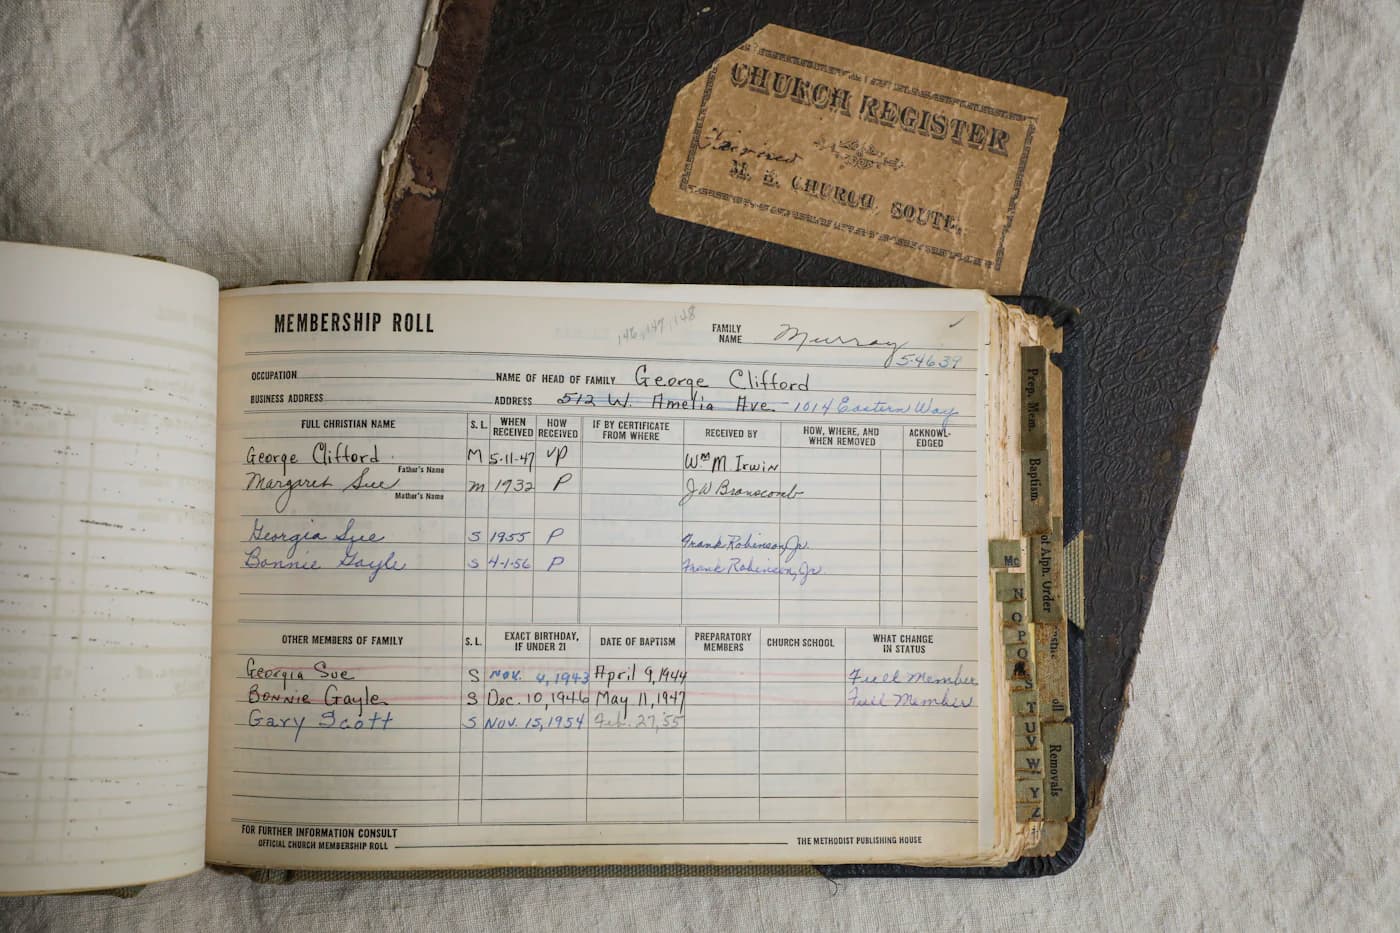 CHURCH REGISTER
M. E. CHURCH, SOUTH,
MEMBERSHIP ROLL
146, 147, 148
FAMILY NAME Murray
5-4639
OCCUPATION NAME OF HEAD OF FAMILY George Clifford
BUSINESS ADDRESS ADDRESS 512 W. Amelia Ave. 1014 Eastern Way
FULL CHRISTIAN NAME S. L. WHEN RECEIVED HOW RECEIVED IF BY CERTIFICATE FROM WHERE RECEIVED BY HOW, WHERE, AND WHEN REMOVED ACKNOWL-EDGED
George Clifford M 5-11-47 VP Wm M Irwin
Father's Name
Margaret Sue m 1932 P J W Branscomb
Mother's Name
Georgia Sue S 1955 P Frank Robinson, Jr.
Bonnie Gayle S 4-1-56 P Frank Robinson, Jr.
OTHER MEMBERS OF FAMILY S. L. EXACT BIRTHDAY, IF UNDER 21 DATE OF BAPTISM PREPARATORY MEMBERS CHURCH SCHOOL WHAT CHANGE IN STATUS
Georgia Sue S Nov. 4, 1943 April 9, 1944 Full Member
Bonnie Gayle S Dec. 10, 1946 May 11, 1947 Full Member
Gary Scott S Nov. 15, 1954 Feb. 27, '55
FOR FURTHER INFORMATION CONSULT
OFFICIAL CHURCH MEMBERSHIP ROLL THE METHODIST PUBLISHING HOUSE
Prep. Mem.
Baptism
of Alph. Order
Removals
Mc
N
O
P
Q
S
T
U
V
W
Y
Z